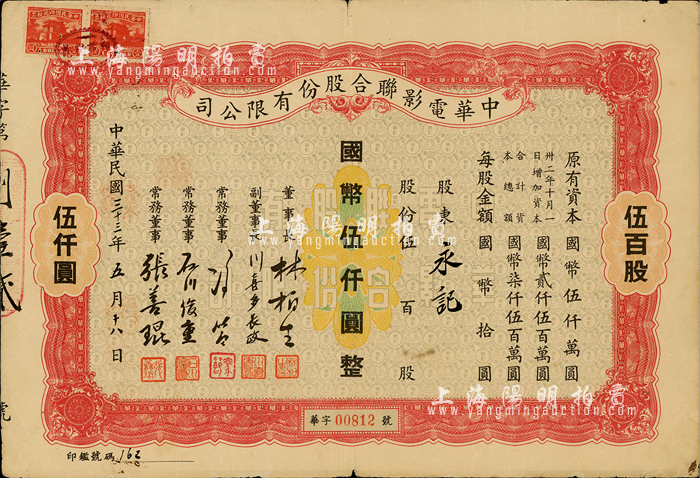 中華電影聯合股份有限公司
原有資本 國幣伍仟萬圓
卅二年十月一日增加資本 國幣貳仟伍百萬圓
合計資本總額 國幣柒仟伍百萬圓
每股金額 國幣拾圓
股東 永記
股份伍百股
國幣伍仟圓整
董事長 林柏生
副董事長 川喜多長政
常務董事 馮節
常務董事 石川俊重
常務董事 張善琨
中華民國三十三年五月十八日
伍百股
伍仟圓
華字 00812 號
印鑑號碼 162
華字第
號
上海陽明拍賣
www.yangmingauction.com
上海陽明拍賣
www.yangmingauction.com
上海陽明拍賣
www.yangmingauction.com